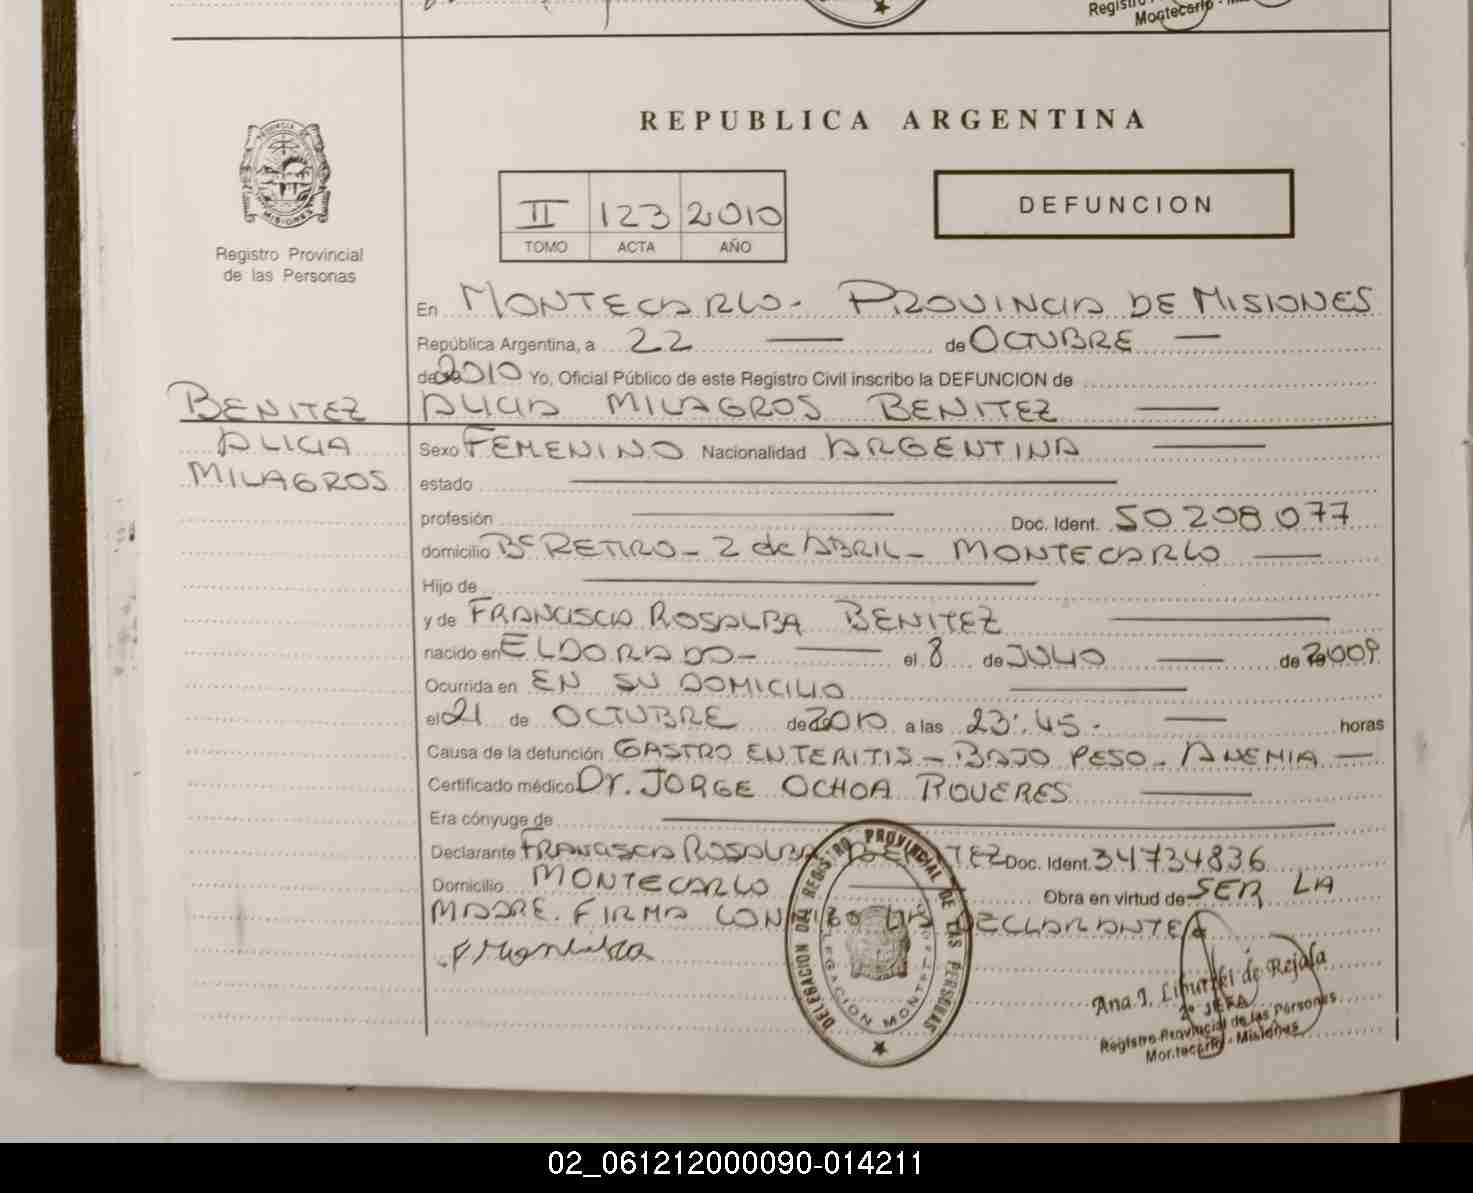 Montecarlo
REPUBLICA ARGENTINA
PROVINCIA DE
MISIONES
Registro Provincial
de las Personas
II 123 2010
TOMO ACTA AÑO
DEFUNCION
En MONTECARLO - PROVINCIA DE MISIONES
República Argentina, a 22 de OCTUBRE
de 2010 Yo, Oficial Público de este Registro Civil inscribo la DEFUNCION de
BENITEZ ALICIA MILAGROS BENITEZ
ALICIA
MILAGROS
Sexo FEMENINO Nacionalidad ARGENTINA
estado
profesión Doc. Ident. 50208077
domicilio Bº RETIRO - 2 de ABRIL - MONTECARLO
Hijo de
y de FRANCISCA ROSALBA BENITEZ
nacido en ELDORADO - el 8 de JULIO de 2009
Ocurrida en EN SU DOMICILIO
el 21 de OCTUBRE de 2010 a las 23:45 - horas
Causa de la defunción GASTRO ENTERITIS - BAJO PESO - ANEMIA
Certificado médico Dr. JORGE OCHOA ROVERES
Era cónyuge de
Declarante FRANCISCA ROSALBA BENITEZ Doc. Ident. 34734836
Domicilio MONTECARLO Obra en virtud de SER LA
MADRE. FIRMA CONMIGO LA DECLARANTE
DELEGACION DEL REGISTRO PROVINCIAL DE LAS PERSONAS
Ana I. de Rejala
2º JEFA
Registro Provincial de las Personas
Montecarlo - Misiones
02_061212000090-014211